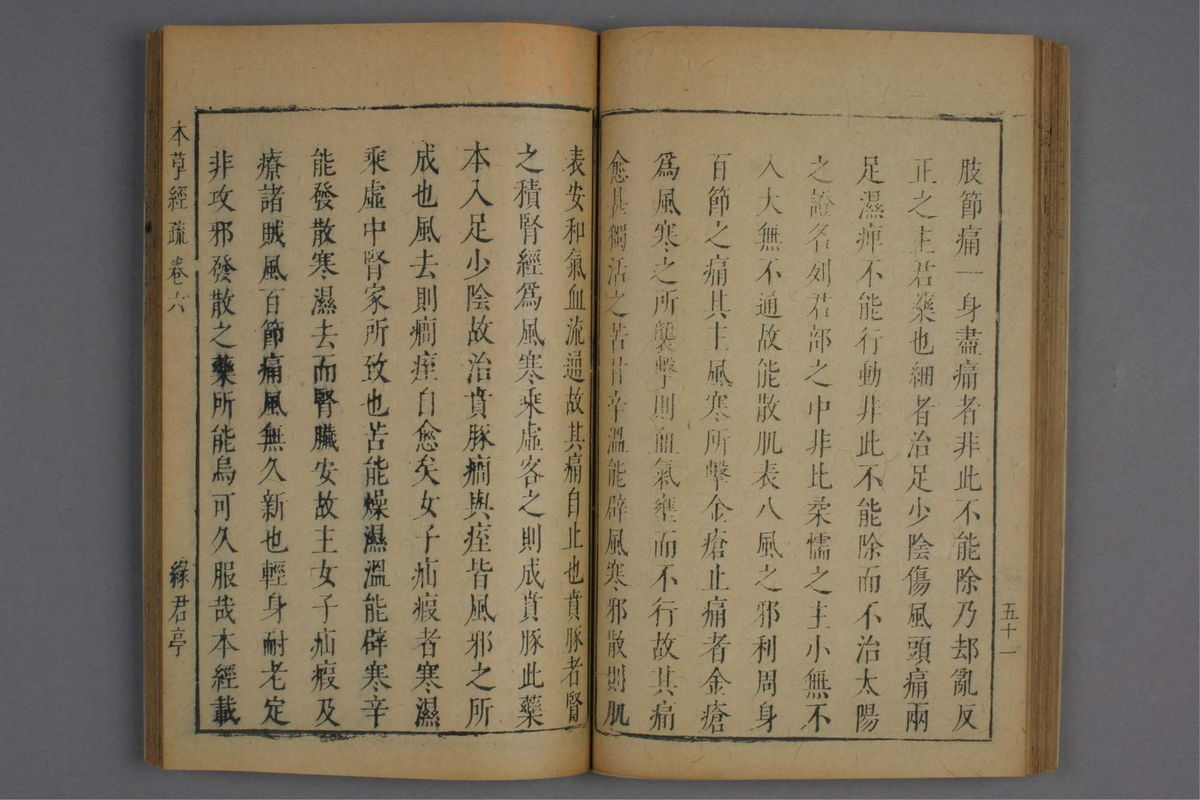 五十一
肢節痛一身盡痛者非此不能除乃却亂反
正之主君藥也細者治足少陰傷風頭痛兩
足濕痺不能行動非此不能除而不治太陽
之證名列君部之中非比柔懦之主小無不
入大無不通故能散肌表八風之邪利周身
百節之痛其主風寒所擊金瘡止痛者金瘡
爲風寒之所襲擊則血氣壅而不行故其痛
愈甚獨活之苦甘辛溫能辟風寒邪散則肌
表安和氣血流通故其痛自止也賁豚者腎
之積腎經爲風寒乘虛客之則成賁豚此藥
本入足少陰故治賁豚癎與痓皆風邪之所
成也風去則癎痓自愈矣女子疝瘕者寒濕
乘虛中腎家所致也苦能燥濕溫能辟寒辛
能發散寒濕去而腎臟安故主女子疝瘕及
療諸賊風百節痛風無久新也輕身耐老定
非攻邪發散之藥所能烏可久服哉本經載
本草經疏 卷六 綠君亭